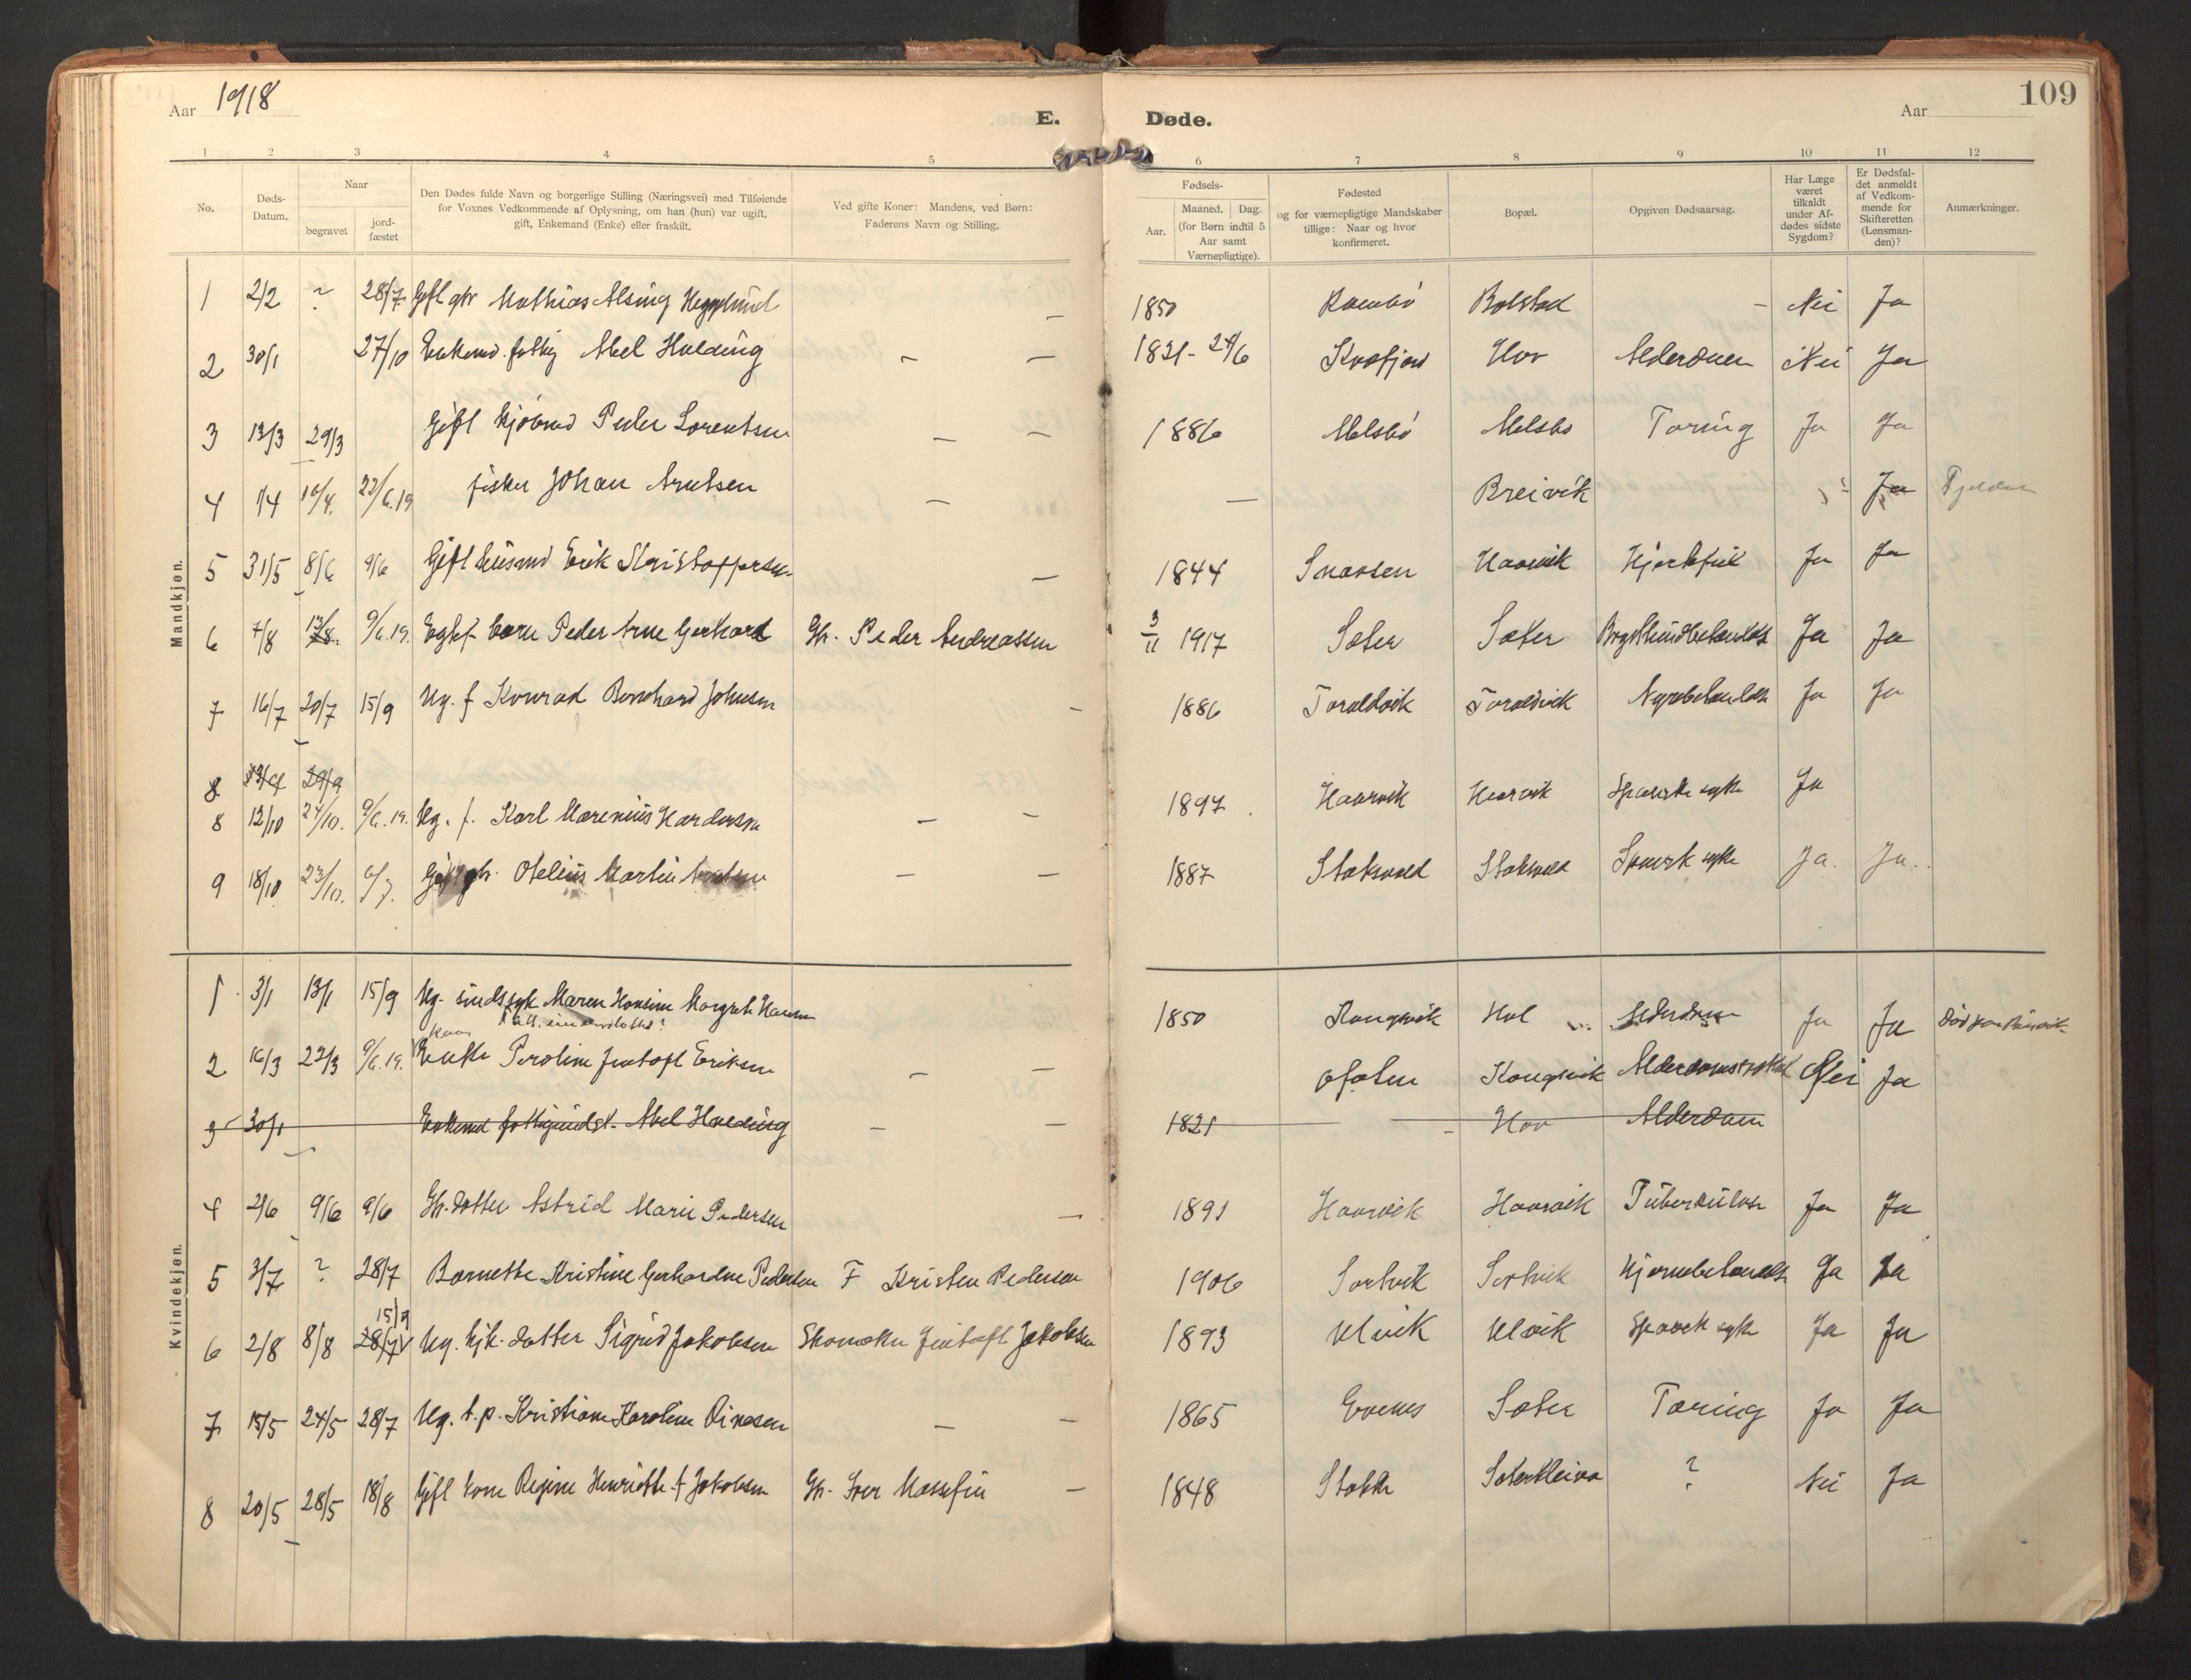 Aar 1918
E.
Døde.
Aar
109
1 2 3 4 5
6 7 8 9 10 11 12
No.
Døds-
Datum.
Naar
begravet
jord-
fæstet
Den Dødes fulde Navn og borgerlige Stilling (Næringsvei) med Tilføiende
for Voxnes Vedkommende af Oplysning, om han (hun) var ugift,
gift, Enkemand (Enke) eller fraskilt.
Ved gifte Koner: Mandens, ved Børn:
Faderens Navn og Stilling.
Fødsels-
Aar.
Maaned. Dag.
(for Børn indtil 5
Aar samt
Værnepligtige).
Fødested
og for værnepligtige Mandskaber
tillige: Naar og hvor
konfirmeret.
Bopæl.
Opgiven Dødsaarsag.
Har Læge
været
tilkaldt
under Af-
dødes sidste
Sygdom?
Er Dødsfal-
det anmeldt
af Vedkom-
mende for
Skifteretten
(Lensman-
den)?
Anmærkninger.
Mandkjøn.
1 2/2 ? 28/7 Gift gbr Mathias Alsing Hegglund — 1850 Bolstad — Nei Ja
2 30/1 27/10 Enkemd. fattig Abel Halding — — 1821 - 24/6 Kvæfjord Hov Alderdom Nei Ja
3 13/3 29/3 Gift kjøbmd Peder Lorentsen — — 1886 Melsbø Melsbø Tæring Ja Ja
4 1/4 10/4. 22/6.19 fisker Johan Arntsen — — Breivik Ja
5 31/5 8/6 9/6 Gift husmd Erik Kristoffersen — 1844 Snaasen Haarvik Hjertefeil Ja Ja
6 7/8 13/8. 9/6.19. Egtef. barn Peder Arne Gerhard Gbr. Peder Andreassen 3/11 1917 Sæter Sæter Ja Ja
7 16/7 20/7 15/9 Ug. f Konrad Bernhard Johnsen — 1886 Toraldvik Toraldvik Nyrebetændelse Ja Ja
8 23/9 29/9
8 12/10 24/10. 9/6.19. Ug. f. Karl Marenius — — 1897 Haarvik Haarvik Spanske syke Ja
9 18/10 23/10. Gift gbr. Otelius Martin — — 1887 Stoksvold Stoksvold Spansk syke Ja. Ja.
Kvindekjøn.
1 3/1 13/1 15/9 Ug. sindssyk Maren Hansine Margrete Hansen 1850 Kongsvik Hol Alderdom Ja Ja
2 16/3 22/3 9/6.19. Enke Peroline Jentoft Eriksen — — Ofoten Kongsvik Nei Ja
3 30/1 Enkemd fattigundst. Abel Halding — — 1821 — Hov Alderdom
4 2/6 9/6 9/6 Gbr. datter Astrid Marie Pedersen — 1891 Haarvik Haarvik Tuberkulose Ja Ja
5 3/7 ? 28/7 Barnette Kristine Gerhardine Pedersen F Kristen Pedersen 1906 Sørtvik Sørtvik Hjernebetændelse Ja Ja
15/9
6 2/8 8/8 28/7 Ug. hjk. datter Sigrid Jakobsen Skomaker Jentoft Jakobsen 1893 Ulvik Ulvik Spansk syke Ja Ja
7 15/5 24/5 28/7 Ug. t.p. Kristiane Karoline — — 1865 Evenes Sæter Tæring Ja Ja
8 20/5 28/5 18/8 Gift kone Regine Henriette f Jakobsen Gbr. Iver — 1848 Stokke ? Nei Ja